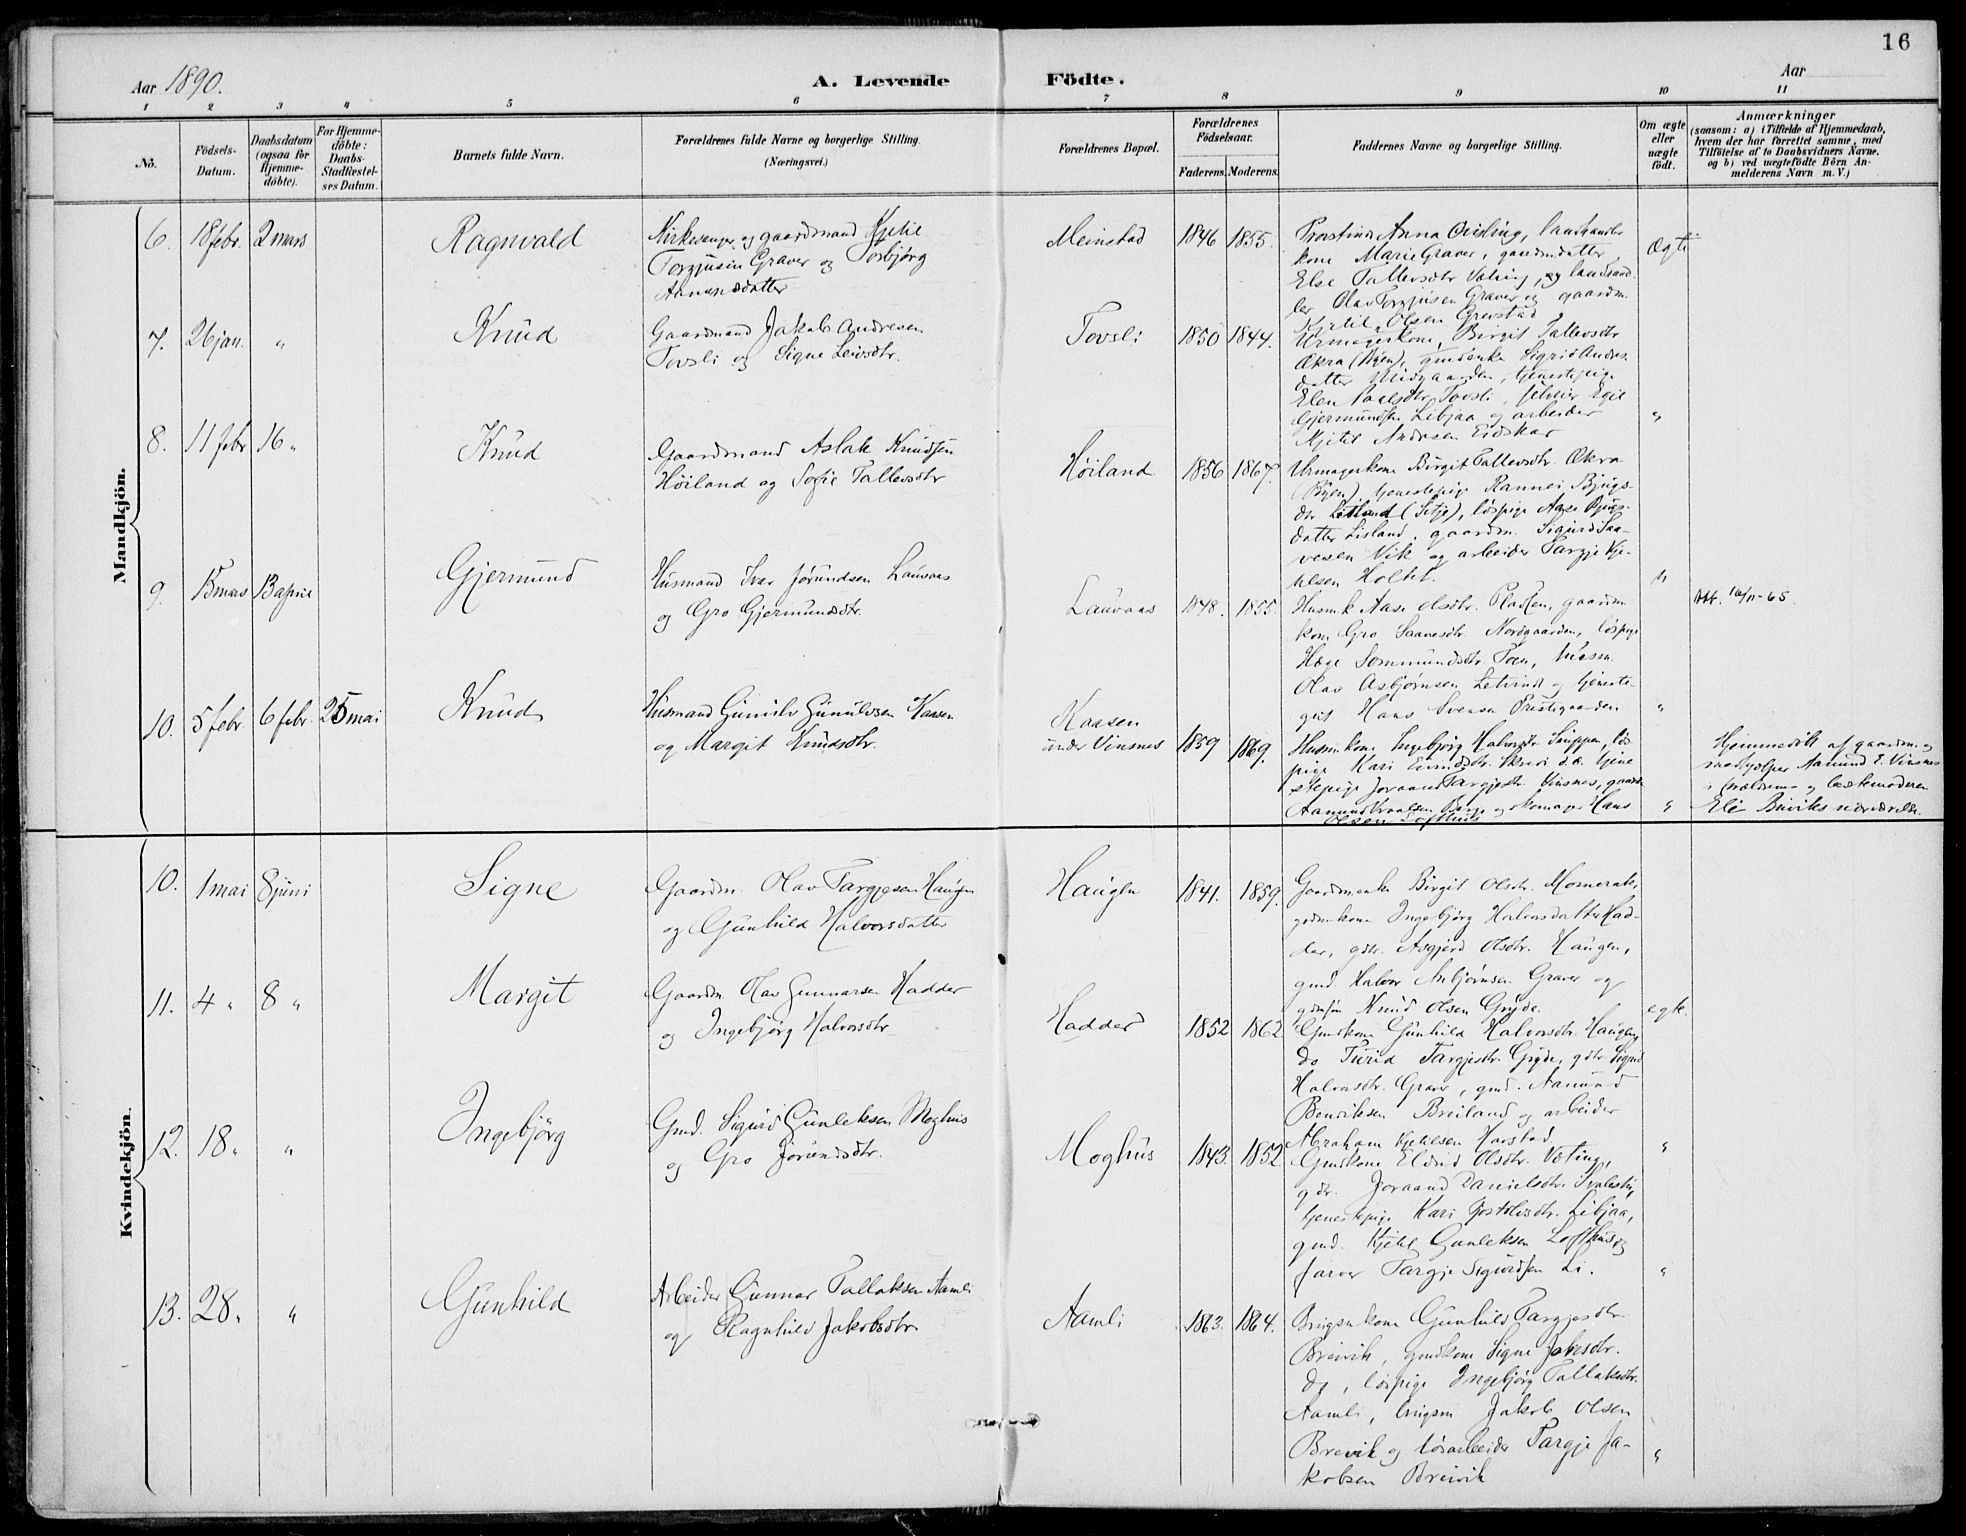 16
Aar 1890.
A. Levende Födte.
Aar
1 2 3 4 5 6 7 8 9 10 11
No.
Födsels-
Datum.
Daabsdatum
(ogsaa for
Hjemme-
döbte).
For Hjemme-
döbte:
Daabs-
Stadfæstel-
ses Datum.
Barnets fulde Navn.
Forældrenes fulde Navne og borgerlige Stilling.
(Næringsvei.)
Forældrenes Bopæl.
Forældrenes
Födselsaar.
Faderens. Moderens.
Faddernes Navne og borgerlige Stilling.
Om ægte
eller
uægte
födt.
Anmærkninger
(saasom: a) i Tilfælde af Hjemmedaab,
hvem der har forrettet samme, med
Tilföielse af to Daabsvidners Navne,
og b) ved uægtefödte Börn An-
melderens Navn m. V.)
Mandkjön.
6. 18 febr. 2 mars
Ragnvald
Kirkesanger og gaardmand Kjetil
Torgjusen Graver og Torbjørg
Aanensdatter
Meinstad
1846 1855.
Provstinde Anna Qvisling, landhandler
kone Marie Graver, gaardmdatter
Else Tallevsdtr Veting, og landhand-
ler Olav Torgjusen Graver og gaardm.
Kjetil Olsen Grevstad
Ægte
7. 26 jan. "
Knud
Gaardmand Jakob Andresen
Tovsli og Signe Leivsdtr.
Tovsli
1850 1844.
Urmagerkone Birgit Tallevsdtr
Økra (Byen), gmdenke Sigrid Andres-
datter Midgaarden, tjenestepige
Elen Paalsdtr Tovsli, selveier Egil
Gjermundsen Libjaa og arbeider
Kjetil Andresen Eidskar
"
8. 11 febr 16 "
Knud
Gaardmand Aslak Knudsen
Høiland og Sofie Tallevsdtr
Høiland
1856 1867.
Urmagerkone Birgit Tallevsdtr. Økra
(Byen) tjenestepige Rannei Bjugs-
dtr Lisland (Setje), løspige Aase Bjugs-
datter Lisland, gaardm. Sigurd Saa-
vesen Vik og arbeider Targje Kje-
tilsen Holtet.
"
9. 15 mars 13 april
Gjermund
Husmand Ivar Jørundsen Lauvaas
og Gro Gjermundsdtr.
Lauvaas
1848. 1855.
Husmk Aase Olsdtr. Pladsen, gaardm
kone Gro Saavesdtr. Nordgaarden, løspige
Hæge Sommundsdtr Toen, husm.
Olav Asbjørnsen Letvindt og tjeneste-
gut Hans Svensen Prestegaarden
"
Att. 16/11-65.
10. 5 febr. 6 febr. 25 mai
Knud
Husmand Gunulv Gunulvsen Kaasen
og Margit Knudsdtr.
Kaasen
under Vinsnes
1859 1869.
Husmkone Ingebjørg Halvorsdtr
pige Kari
stepige Joraand Targjesdtr. Vinsnes, gaardm
Aamund og skomager Hans
Olsen
"
Hjemmedøbt af gaardm. og
medhjælper Aamund E. Vinsnes
i forældrenes og bestemoderen
Eli Breiviks nærværelse.
Kvindekjön.
10. 1 mai 8 juni
Signe
Gaardm. Olav Targjesen Haugen
og Gunhild Halvorsdatter
Haugen
1841. 1859.
Gaardmenke Birgit Olsdtr. Momrak,
gdmkone Ingebjørg Halvorsdatter Had-
der, gdtr. Asgjerd Olsdtr. Haugen,
gmd. Halvor Anbjørnsen Graver og
gdmsøn Knud Olsen Gryde.
egte.
11. 4 " 8 "
Margit
Gaardm. Olav Gunnarsen Hadder
og Ingebjørg Halvorsdtr
Hadder
1852 1862.
Gmdkone Gunhild Halvorsdtr. Haugen,
do Turid Targjesdtr. Gryde, gdtr Sigrid
Halvorsdtr. Graver, gmd. Aamund
Bendiksen Breiland og arbeider
Abraham Kjetilsen Harstad
"
12. 18 " "
Ingebjørg
Gmd. Sigurd Gunleksen Moghus
og Gro Jørundsdtr.
Moghus
1843. 1852.
Gmdkone Eldrid Olsdtr. Veting,
gdr. Joraand Danielsdtr.
tjenestepige Kari Gostolvsdtr. Libjaa,
gmd. Kjetil Gunleksen Lofthus og
farver Targje Sigurdsen Li.
"
13. 28 " "
Gunhild
Arbeider Gunnar Tallaksen Aamli
og Ragnhild Jakobsdtr.
Aamli
1863. 1864.
Brugsmkone Gunhild Targjesdtr.
Breivik, gmdkone Signe Jakobsdtr.
do, løspige Ingebjørg Tallaksdtr.
Aamli, brugsm Jakob Olsen
Breivik og løsarbeider Targje Ja-
kobsen Breivik
"